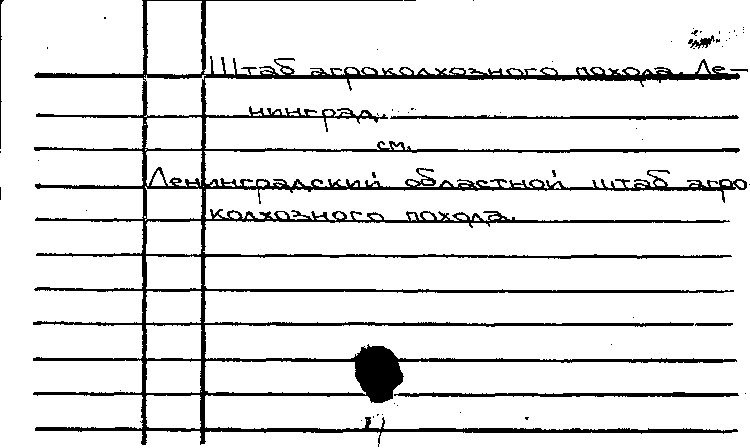 Штаб агроколхозного похода. Ле-
нинград.
см.
Ленинградский областной штаб агро
колхозного похода.